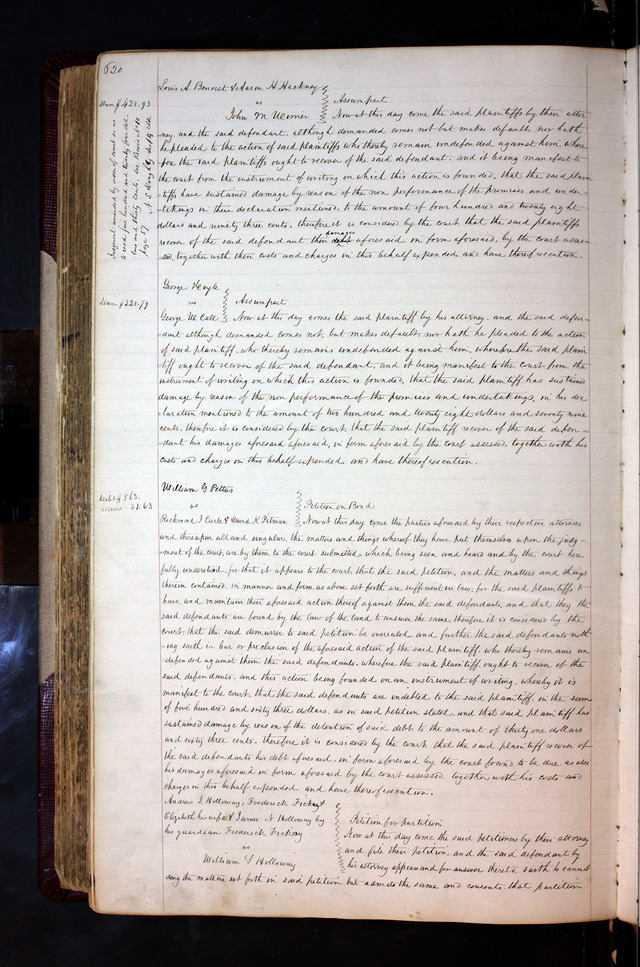 620
Louis A Benoist & Aaron H Hackney
vs Assumpsit
Dam $428.93
John M Weimer Now at this day come the said plaintiffs by their attor-
ney and the said defendant although demanded comes not but makes default, nor hath
he pleaded to the action of said plaintiffs who thereby remain undefended against him where-
fore the said plaintiffs ought to recover of the said defendant, and it being manifest to
the court from the instrument of writing on which this action is founded, that the said plain
tiffs have sustained damage by reason of the non performance of the promises and under-
takings in their declaration mentioned, to the amount of four hundred and twenty eight
dollars and ninety three cents, therefore it is considered by the court that the said plaintiffs
recover of the said defendant their damages aforesaid in form aforesaid, by the court assess-
ed, together with their costs and charges in this behalf expended and have thereof execution.
Judgment amended by order of court so as
to read four hundred and twenty four dol-
lars and thirty cents. see Book
page 57
George Heyle
vs Assumpsit
Dam $228.79
George McCall Now at this day comes the said plaintiff by his attorney, and the said defen-
-dant although demanded comes not, but makes default, nor hath he pleaded to the action
of said plaintiff, who thereby remains undefended against him, wherefore the said plain
tiff ought to recover of the said defendant, and it being manifest to the court from the
instrument of writing on which this action is founded, that the said plaintiff has sustained
damage by reason of the non performance of the promises and undertakings, in his dec
laration mentioned to the amount of two hundred and twenty eight dollars and seventy nine
cents, therefore it is considered by the court that the said plaintiff recover of the said defen-
-dant his damages aforesaid, in form aforesaid by the court assessed, together with his
costs and charges in this behalf expended, and have thereof execution.
William G Pettus
Debt $563.
Dam 31.63
vs Petition on Bond
Richmond J Curle & David K Pitman Now at this day come the parties aforesaid by their respective attornies
and thereupon all and singular, the matters and things whereof they have put themselves upon the judg-
ment of the court, are by them to the court submitted, which being seen and heard and by the court here
fully understood, for that it appears to the court that the said petition, and the matters and things
therein contained, in manner and form as above set forth are sufficient in law, for the said plaintiffs to
have and maintain their aforesaid action thereof against them the said defendants, and that they the
said defendants are bound by the law of the land to answer the same, therefore it is considered by the
court, that the said demurrer to said petition be overruled, and further the said defendants noth
-ing saith in bar or preclusion of the aforesaid action of the said plaintiff, who thereby remains un
-defended against them the said defendants, wherefore the said plaintiff ought to recover of the
said defendants, and this action being founded on an instrument of writing, whereby it is
manifest to the court, that the said defendants are indebted to the said plaintiff in the sum
of five hundred and sixty three dollars, as in said petition stated, and that said plaintiff has
sustained damage by reason of the detention of said debt to the amount of thirty one dollars
and sixty three cents, therefore it is considered by the court that the said plaintiff recover of
the said defendants his debt aforesaid, in form aforesaid by the court found to be due, as also
his damages aforesaid in form aforesaid by the court assessed, together with his costs and
charges in this behalf expended and have thereof execution.
I Holloway, Frederick Fickay &
Elizabeth his wife & James N Holloway by Petition for partition
his guardian Frederick Fickay Now at this day come the said petitioners by their attorney
vs and file their petition, and the said defendant by
William S Holloway his attorney appears and for answer thereto saith he cannot
deny the matters set forth in said petition but admits the same and consents that partition